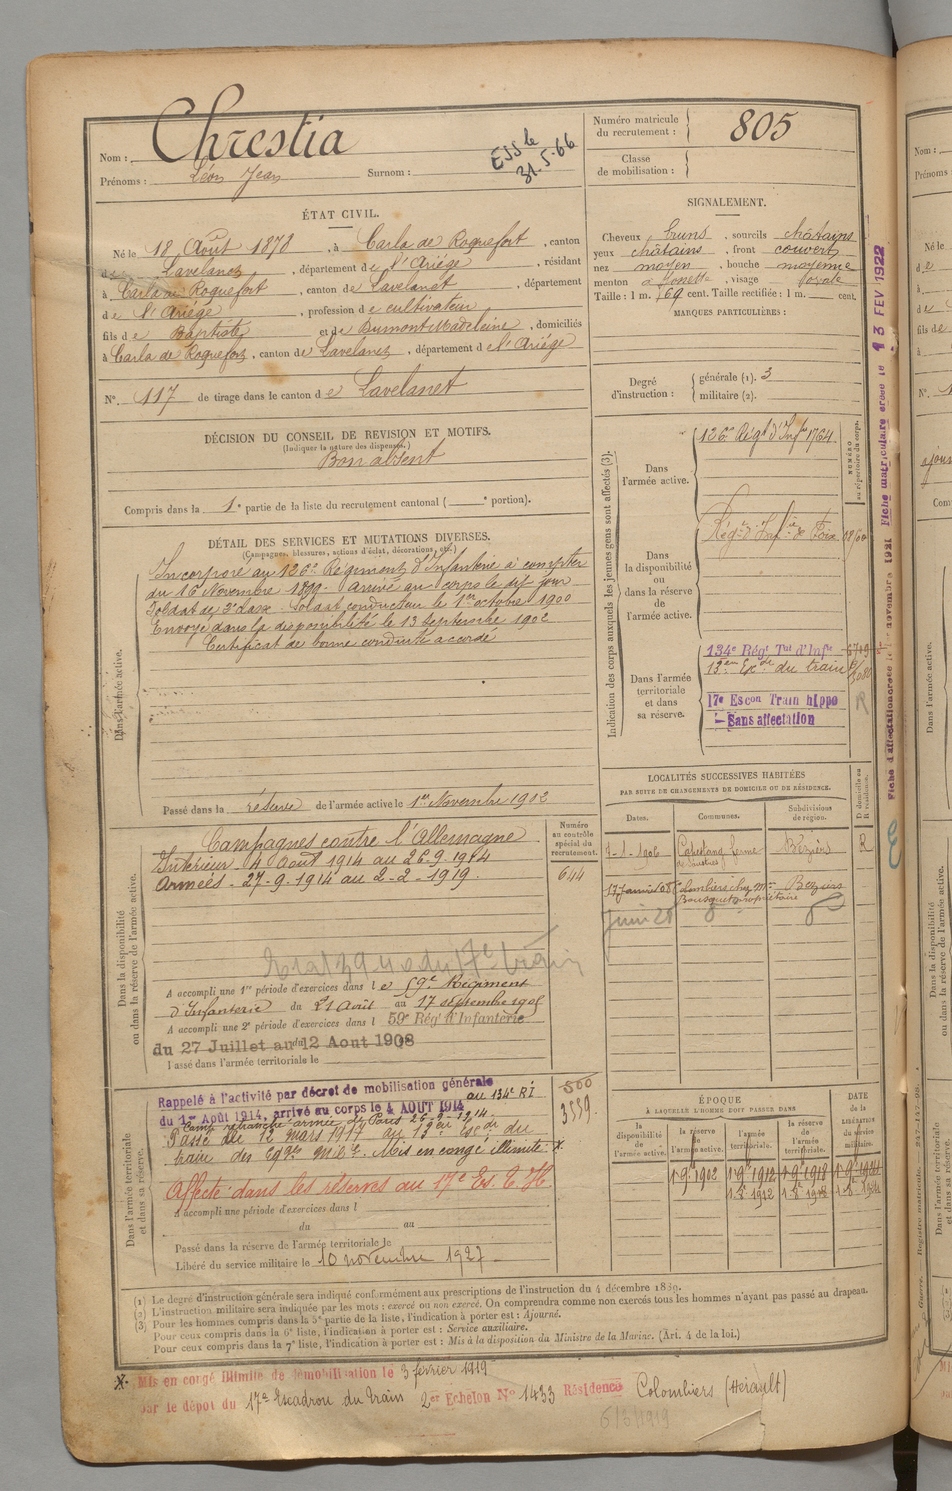 Nom : Chrestia
Prénoms : Léon Jean Surnom :
ESS le
31.5.66
Numéro matricule
du recrutement : 805
Classe
de mobilisation :
ÉTAT CIVIL.
Né le 18 Août 1878, à Carla de Roquefort, canton
de Lavelanet, département de l'Ariége, résidant
à Carla de Roquefort, canton de Lavelanet, département
de l'Ariége, profession de cultivateur
fils de Baptiste et de Dumont Madeleine, domiciliés
à Carla de Roquefort, canton de Lavelanet, département de l'Ariége
N° 117 de tirage dans le canton de Lavelanet
DÉCISION DU CONSEIL DE REVISION ET MOTIFS.
(Indiquer la nature des dispenses.)
Bon absent
Compris dans la 1e partie de la liste du recrutement cantonal ( e portion).
SIGNALEMENT.
Cheveux bruns, sourcils châtains
yeux châtains, front couvert
nez moyen, bouche moyenne
menton à fossette, visage ovale
Taille : 1 m. 69 cent. Taille rectifiée : 1 m. cent.
MARQUES PARTICULIÈRES :
Degré
d'instruction :
générale (1). 3
militaire (2).
DÉTAIL DES SERVICES ET MUTATIONS DIVERSES.
(Campagnes, blessures, actions d'éclat, décorations, etc.)
Dans l'armée active.
Incorporé au 126e Régiment d'Infanterie à compter
du 16 Novembre 1899. Arrivé au corps le dit jour
Soldat de 2e classe. Soldat conducteur le 1er octobre 1900
Envoyé dans la disponibilité le 13 septembre 1902
Certificat de bonne conduite accordé
Passé dans la réserve de l'armée active le 1er Novembre 1902
Indication des corps auxquels les jeunes gens sont affectés (3).
NUMÉRO
au répertoire du corps.
Dans
l'armée active.
126e Régt d'Infie 1764
Dans
la disponibilité
ou
dans la réserve
de
l'armée active.
Régt d'Infie de Foix
Dans l'armée
territoriale
et dans
sa réserve.
134e Régt Tal d'Infie
13eme Exon du train
17e Escon Train hippo
Sans affectation
R
Fiche matriculaire créée le 13 FEV 1922
LOCALITÉS SUCCESSIVES HABITÉES
PAR SUITE DE CHANGEMENTS DE DOMICILE OU DE RÉSIDENCE.
Dates. Communes. Subdivisions
de région. D domicile ou
R résidence.
7-1-1906 Capestang ferme Béziers R
17 Janvier 08 Colombiers chez Mr Beziers
Bousquet propriétaire
Dans la disponibilité
ou dans la réserve de l'armée active.
Numéro
au contrôle
spécial du
recrutement.
644
Campagnes contre l'Allemagne
Intérieur. 4 Août 1914 au 26.9.1914
Armées. 27.9.1914 au 2-2-1919.
A accompli une 1re période d'exercices dans le 59e Régiment
d'Infanterie du 21 Août au 17 septembre 1905
A accompli une 2e période d'exercices dans l 59e Régt d'Infanterie
du 27 Juillet au 12 Aout 1908
Passé dans l'armée territoriale le
Dans l'armée territoriale
et dans sa réserve.
500
3559.
Rappelé à l'activité par décret de mobilisation générale
du 1er Août 1914, arrivé au corps le 4 AOUT 1914 au 134e RI
Camp retranché armée de Paris 26-9-1914.
Passé le 12 mars 1917 au 19eme Escon du
train des Eqges Mres. Mis en congé illimité X.
Affecté dans les réserves au 17e Es. T. H
A accompli une période d'exercices dans l
du au
Passé dans la réserve de l'armée territoriale le
Libéré du service militaire le 10 novembre 1927
ÉPOQUE
À LAQUELLE L'HOMME DOIT PASSER DANS
DATE
de la
LIBÉRATION
du service
militaire.
la disponibilité
de l'armée active. la réserve
de l'armée active. l'armée
territoriale. la réserve
de l'armée
territoriale.
1-9-1902 1-9-1912 1-9-1918
(1) Le degré d'instruction générale sera indiqué conformément aux prescriptions de l'instruction du 4 décembre 1889.
(2) L'instruction militaire sera indiquée par les mots : exercé ou non exercé. On comprendra comme non exercés tous les hommes n'ayant pas passé au drapeau.
(3) Pour les hommes compris dans la 5e partie de la liste, l'indication à porter est : Ajourné.
Pour ceux compris dans la 6e liste, l'indication à porter est : Service auxiliaire.
Pour ceux compris dans la 7e liste, l'indication à porter est : Mis à la disposition du Ministre de la Marine. (Art. 4 de la loi.)
X. Mis en congé illimité de démobilisation le 3 février 1919
par le dépot du 17e Escadron du Train 2er Echelon N° 1433 Résidence Colombiers (Hérault)
6/3/1919